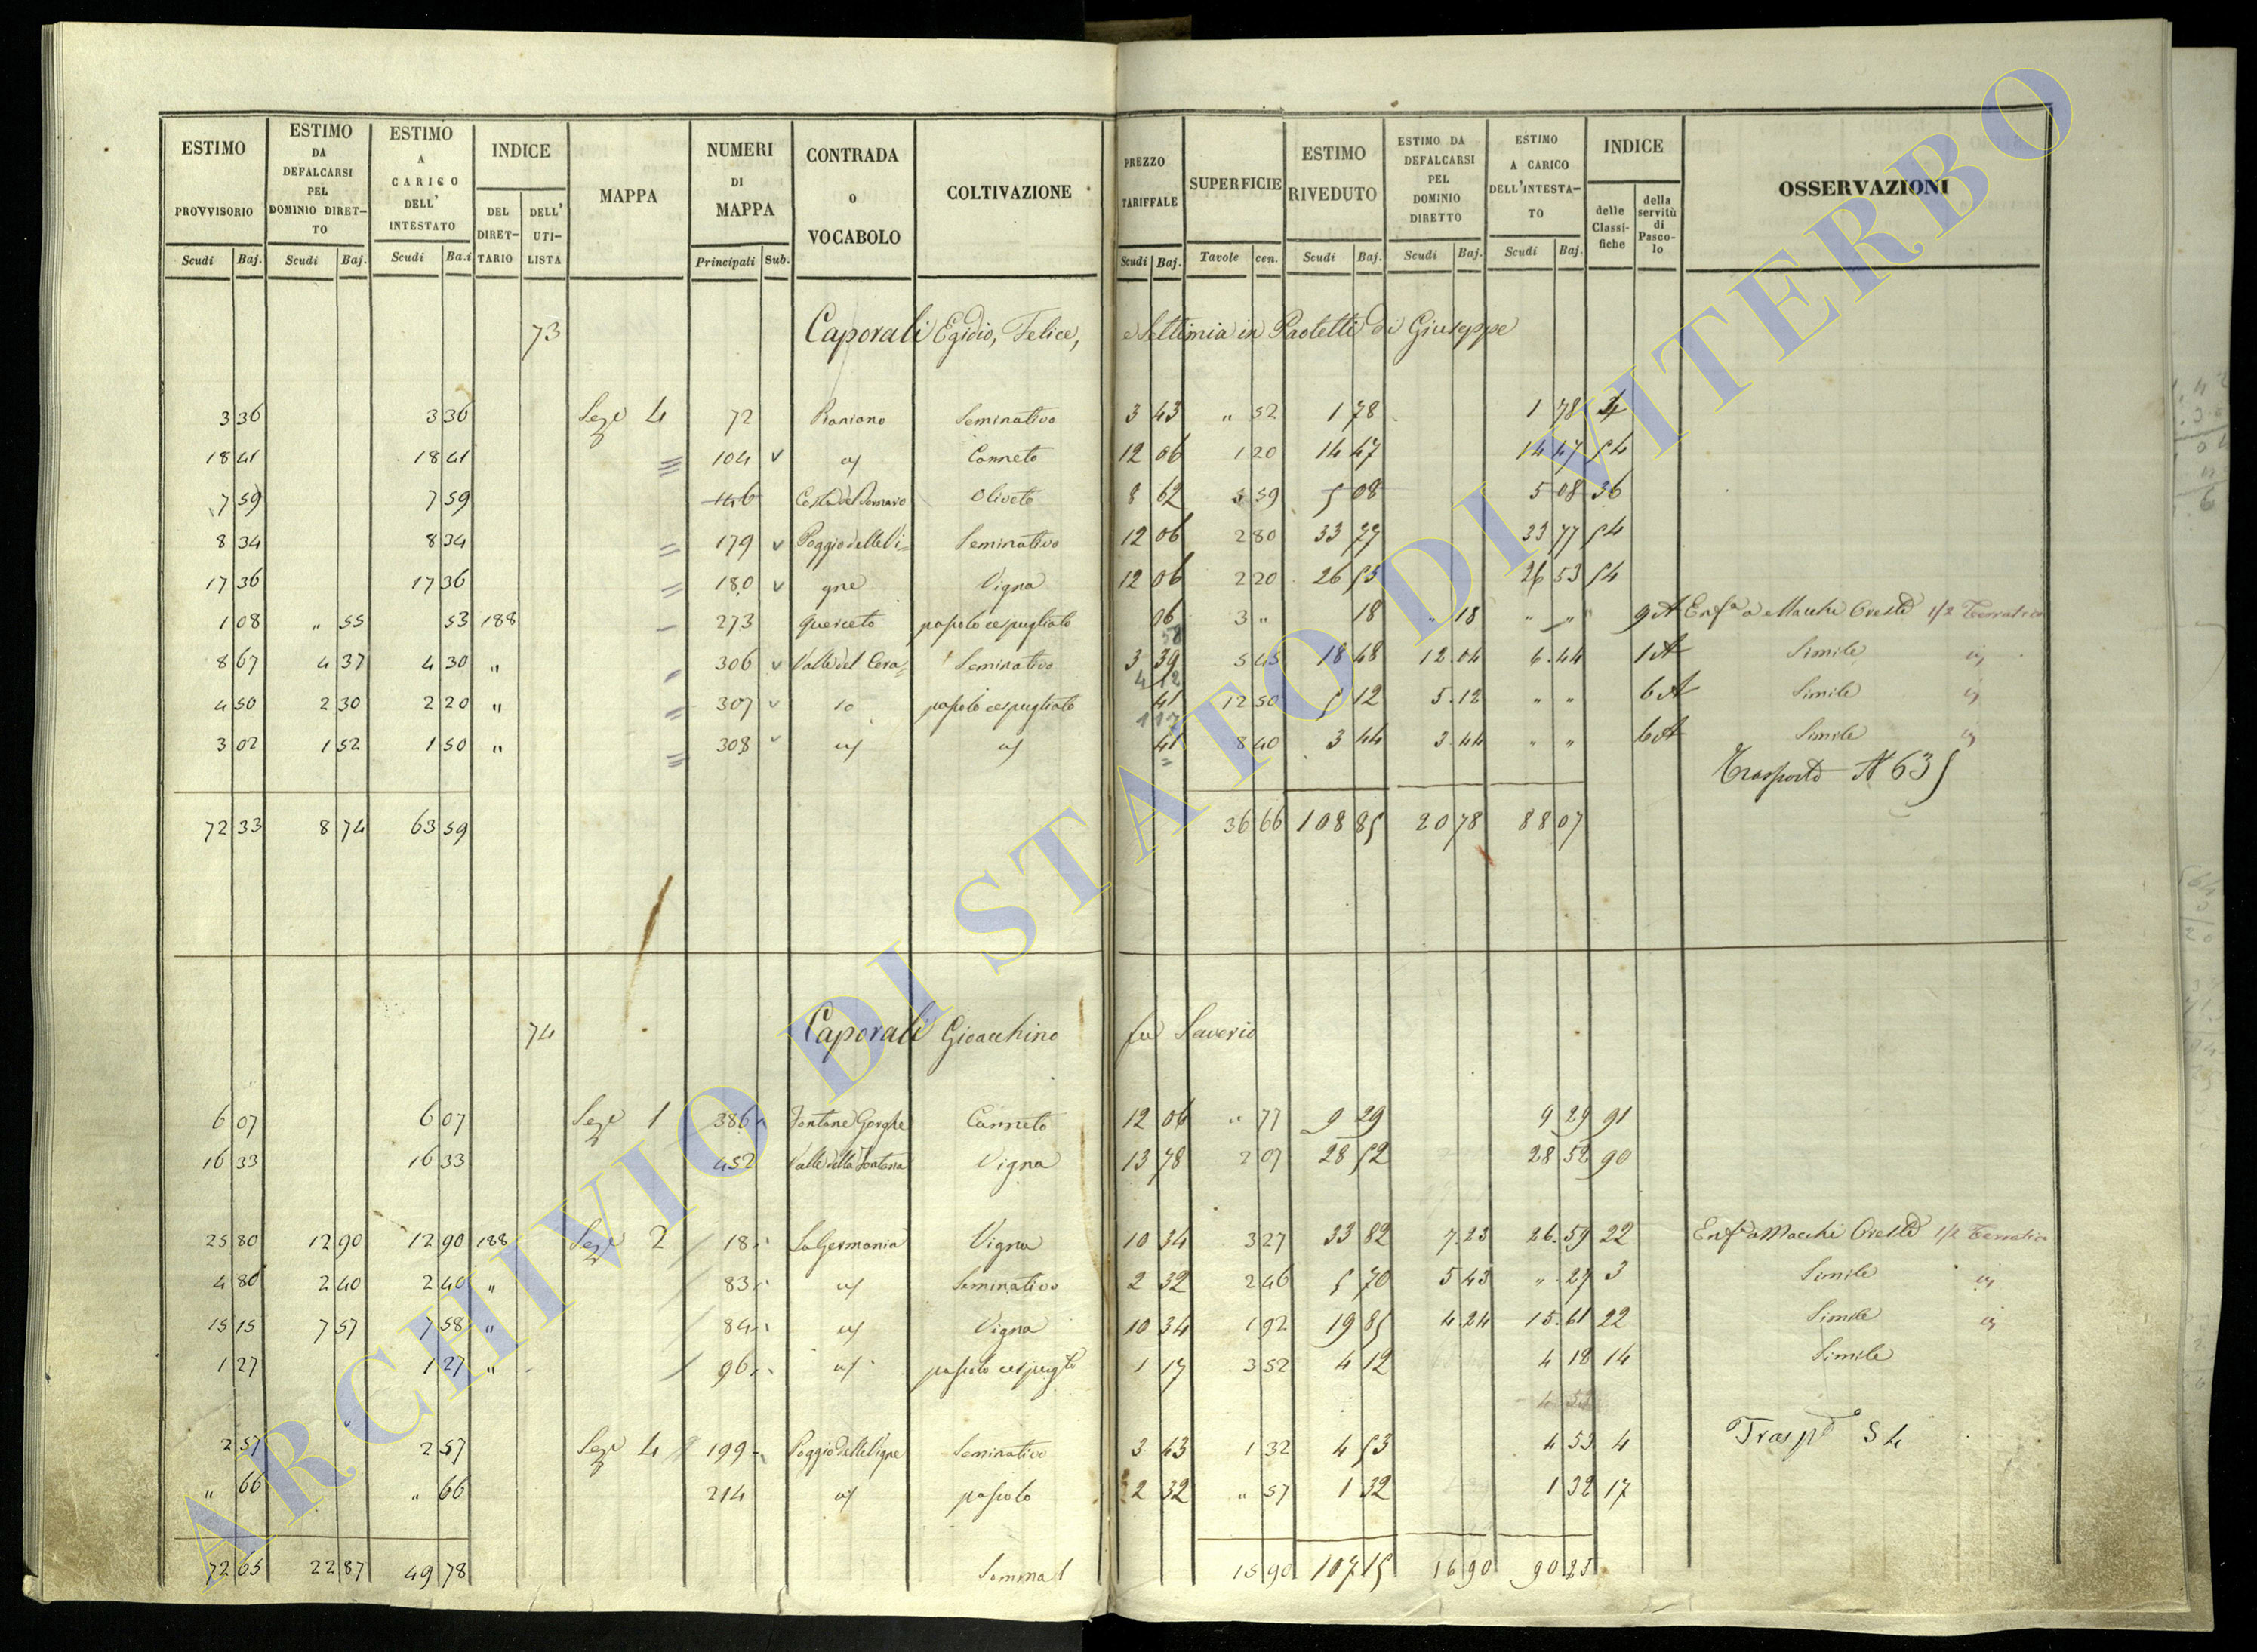 ESTIMO PROVVISORIO | ESTIMO DA DEFALCARSI PEL DOMINIO DIRET-TO | ESTIMO A CARICO DELL' INTESTATO | INDICE | MAPPA | NUMERI DI MAPPA | CONTRADA o VOCABOLO | COLTIVAZIONE | PREZZO TARIFFALE | SUPERFICIE | ESTIMO RIVEDUTO | ESTIMO DA DEFALCARSI PEL DOMINIO DIRETTO | ESTIMO A CARICO DELL'INTESTA-TO | INDICE | OSSERVAZIONI
DEL DIRET-TARIO | DELL' UTI-LISTA | delle Classi-fiche | della servitù di Pasco-lo
Scudi Baj. | Scudi Baj. | Scudi Ba.i | Principali Sub. | Scudi Baj. | Tavole cen. | Scudi Baj. | Scudi Baj. | Scudi Baj.
73 Caporali Egidio, Felice, e Settimia in Paoletti di Giuseppe
3 36 | 3 36 | Seze 4 | 72 | Raniano | Seminativo | 3 43 | " 52 | 1 78 | 1 78 | 4
18 41 | 18 41 | 104 v | | Canneto | 12 06 | 1 20 | 14 47 | 14 47 | 54
7 59 | 7 59 | 146 | Costa del | Oliveto | 8 62 | 59 | 5 08 | 5 08 | 36
8 34 | 8 34 | 179 v | Poggio delle Vi= | Seminativo | 12 06 | 2 80 | 33 77 | 33 77 | 54
17 36 | 17 36 | 180 v | gne | Vigna | 12 06 | 2 20 | 26 53 | 26 53 | 54
1 08 | " 55 | 53 | 188 | 273 | Querceto | pascolo cespugliato | 06 | 3 " | 18 | " 18 | " " | 9 A | Enfa a Macchi Oreste 1/2 Terratico
8 67 | 4 37 | 4 30 | " | 306 v | Valle del Cera= | Seminativo | 3 39 | 5 45 | 18 48 | 12.04 | 6.44 | 1 A | Simile
4 50 | 2 30 | 2 20 | " | 307 v | so | pascolo cespugliato | 41 | 12 50 | 5 12 | 5.12 | " " | 6 A | Simile
3 02 | 1 52 | 1 50 | " | 308 v | | | 41 | 8 40 | 3 44 | 3.44 | " " | 6 A | Simile
Trasporto N 635
72 33 | 8 74 | 63 59 | 36 66 | 108 85 | 20 78 | 88 07
74 Caporali Gioacchino fu Saverio
6 07 | 6 07 | Seze 1 | 386 | Fontane Gorghe | Canneto | 12 06 | " 77 | 9 29 | 9 29 | 91
16 33 | 16 33 | 452 | Valle della Fontana | Vigna | 13 78 | 2 07 | 28 52 | 28 52 | 90
25 80 | 12 90 | 12 90 | 188 | Seze 2 | 18 | La Germania | Vigna | 10 34 | 3 27 | 33 82 | 7.23 | 26.59 | 22 | Enfa a Macchi Oreste 1/2 Terratico
4 80 | 2 40 | 2 40 | " | 83 | | Seminativo | 2 32 | 2 46 | 5 70 | 5 43 | ".27 | 3 | Simile
15 15 | 7 57 | 7 58 | " | 84 | | Vigna | 10 34 | 1 92 | 19 85 | 4.24 | 15.61 | 22 | Simile
1 27 | 1 27 | " | 96 | | pascolo cespugto | 1 17 | 3 52 | 4 12 | 4 18 | 14 | Simile
2 57 | 2 57 | Seze 4 | 199 | Poggio delle Vigne | Seminativo | 3 43 | 1 32 | 4 53 | 4 53 | 4 | Traspto 54
" 66 | " 66 | 214 | | pascolo | 2 32 | " 57 | 1 32 | 1 32 | 17
72 65 | 22 87 | 49 78 | Somma | 15 90 | 107 15 | 16 90 | 90 25
ARCHIVIO DI STATO DI VITERBO